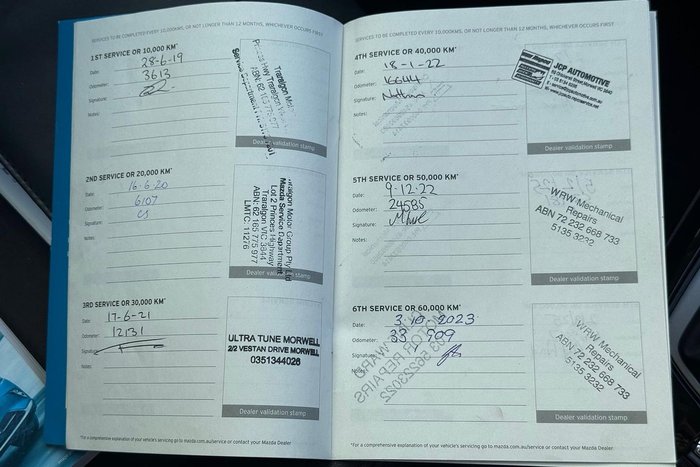 SERVICES TO BE COMPLETED EVERY 10,000KMS, OR NOT LONGER THAN 12 MONTHS, WHICHEVER OCCURS FIRST
1ST SERVICE OR 10,000 KM*
Date: 28-6-19
Odometer: 3613
Signature:
Notes:
Traralgon Mot
Princes HWY Traralgon
ABN: 62 165 775 977
Dealer validation stamp
2ND SERVICE OR 20,000 KM*
Date: 16.6.20
Odometer: 6107
Signature: CS
Notes:
Traralgon Motor Group Pty Ltd
Mazda Service Department
Lot 2 Princes Highway
Traralgon VIC 3844
ABN: 62 165 775 977
LMTC: 11276
Dealer validation stamp
3RD SERVICE OR 30,000 KM*
Date: 17-6-21
Odometer: 12131
Signature:
Notes:
ULTRA TUNE MORWELL
2/2 VESTAN DRIVE MORWELL
0351344026
Dealer validation stamp
*For a comprehensive explanation of your vehicle's servicing go to mazda.com.au/service or contact your Mazda Dealer
SERVICES TO BE COMPLETED EVERY 10,000KMS, OR NOT LONGER THAN 12 MONTHS, WHICHEVER OCCURS FIRST
4TH SERVICE OR 40,000 KM*
Date: 18-1-22
Odometer: 16644
Signature: Nathan
Notes:
JCP AUTOMOTIVE
Dealer validation stamp
5TH SERVICE OR 50,000 KM*
Date: 9.12.22
Odometer: 24585
Signature:
Notes:
WRW Mechanical
Repairs
ABN 72 232 668 733
5135 3232
Dealer validation stamp
6TH SERVICE OR 60,000 KM*
Date: 3-10-2023
Odometer: 33 909
Signature:
Notes:
WRW Mechanical
Repairs
ABN 72 232 668 733
5135 3232
Dealer validation stamp
*For a comprehensive explanation of your vehicle's servicing go to mazda.com.au/service or contact your Mazda Dealer